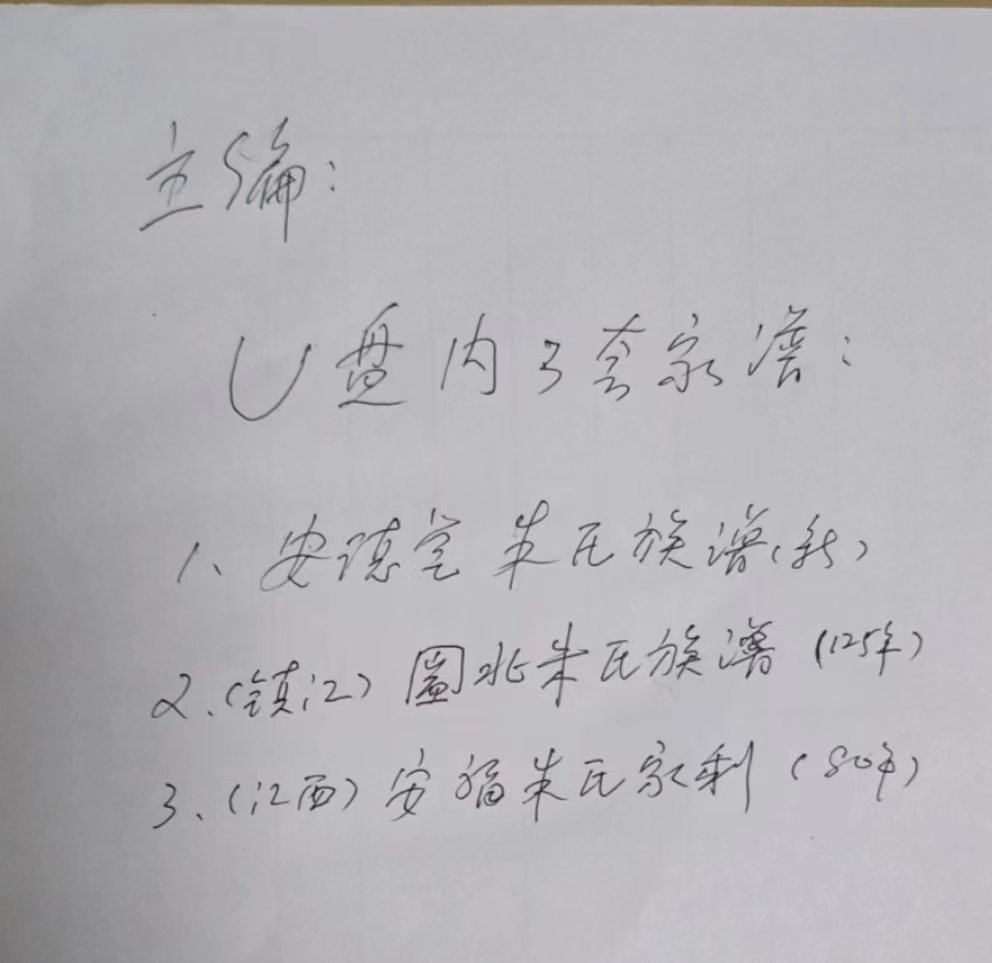 主编:
U盘内3套家谱:
1、安德堂朱氏族谱(新)
2、(镇江)圌北朱氏族谱(125年)
3、(江西)安福朱氏家利(80年)